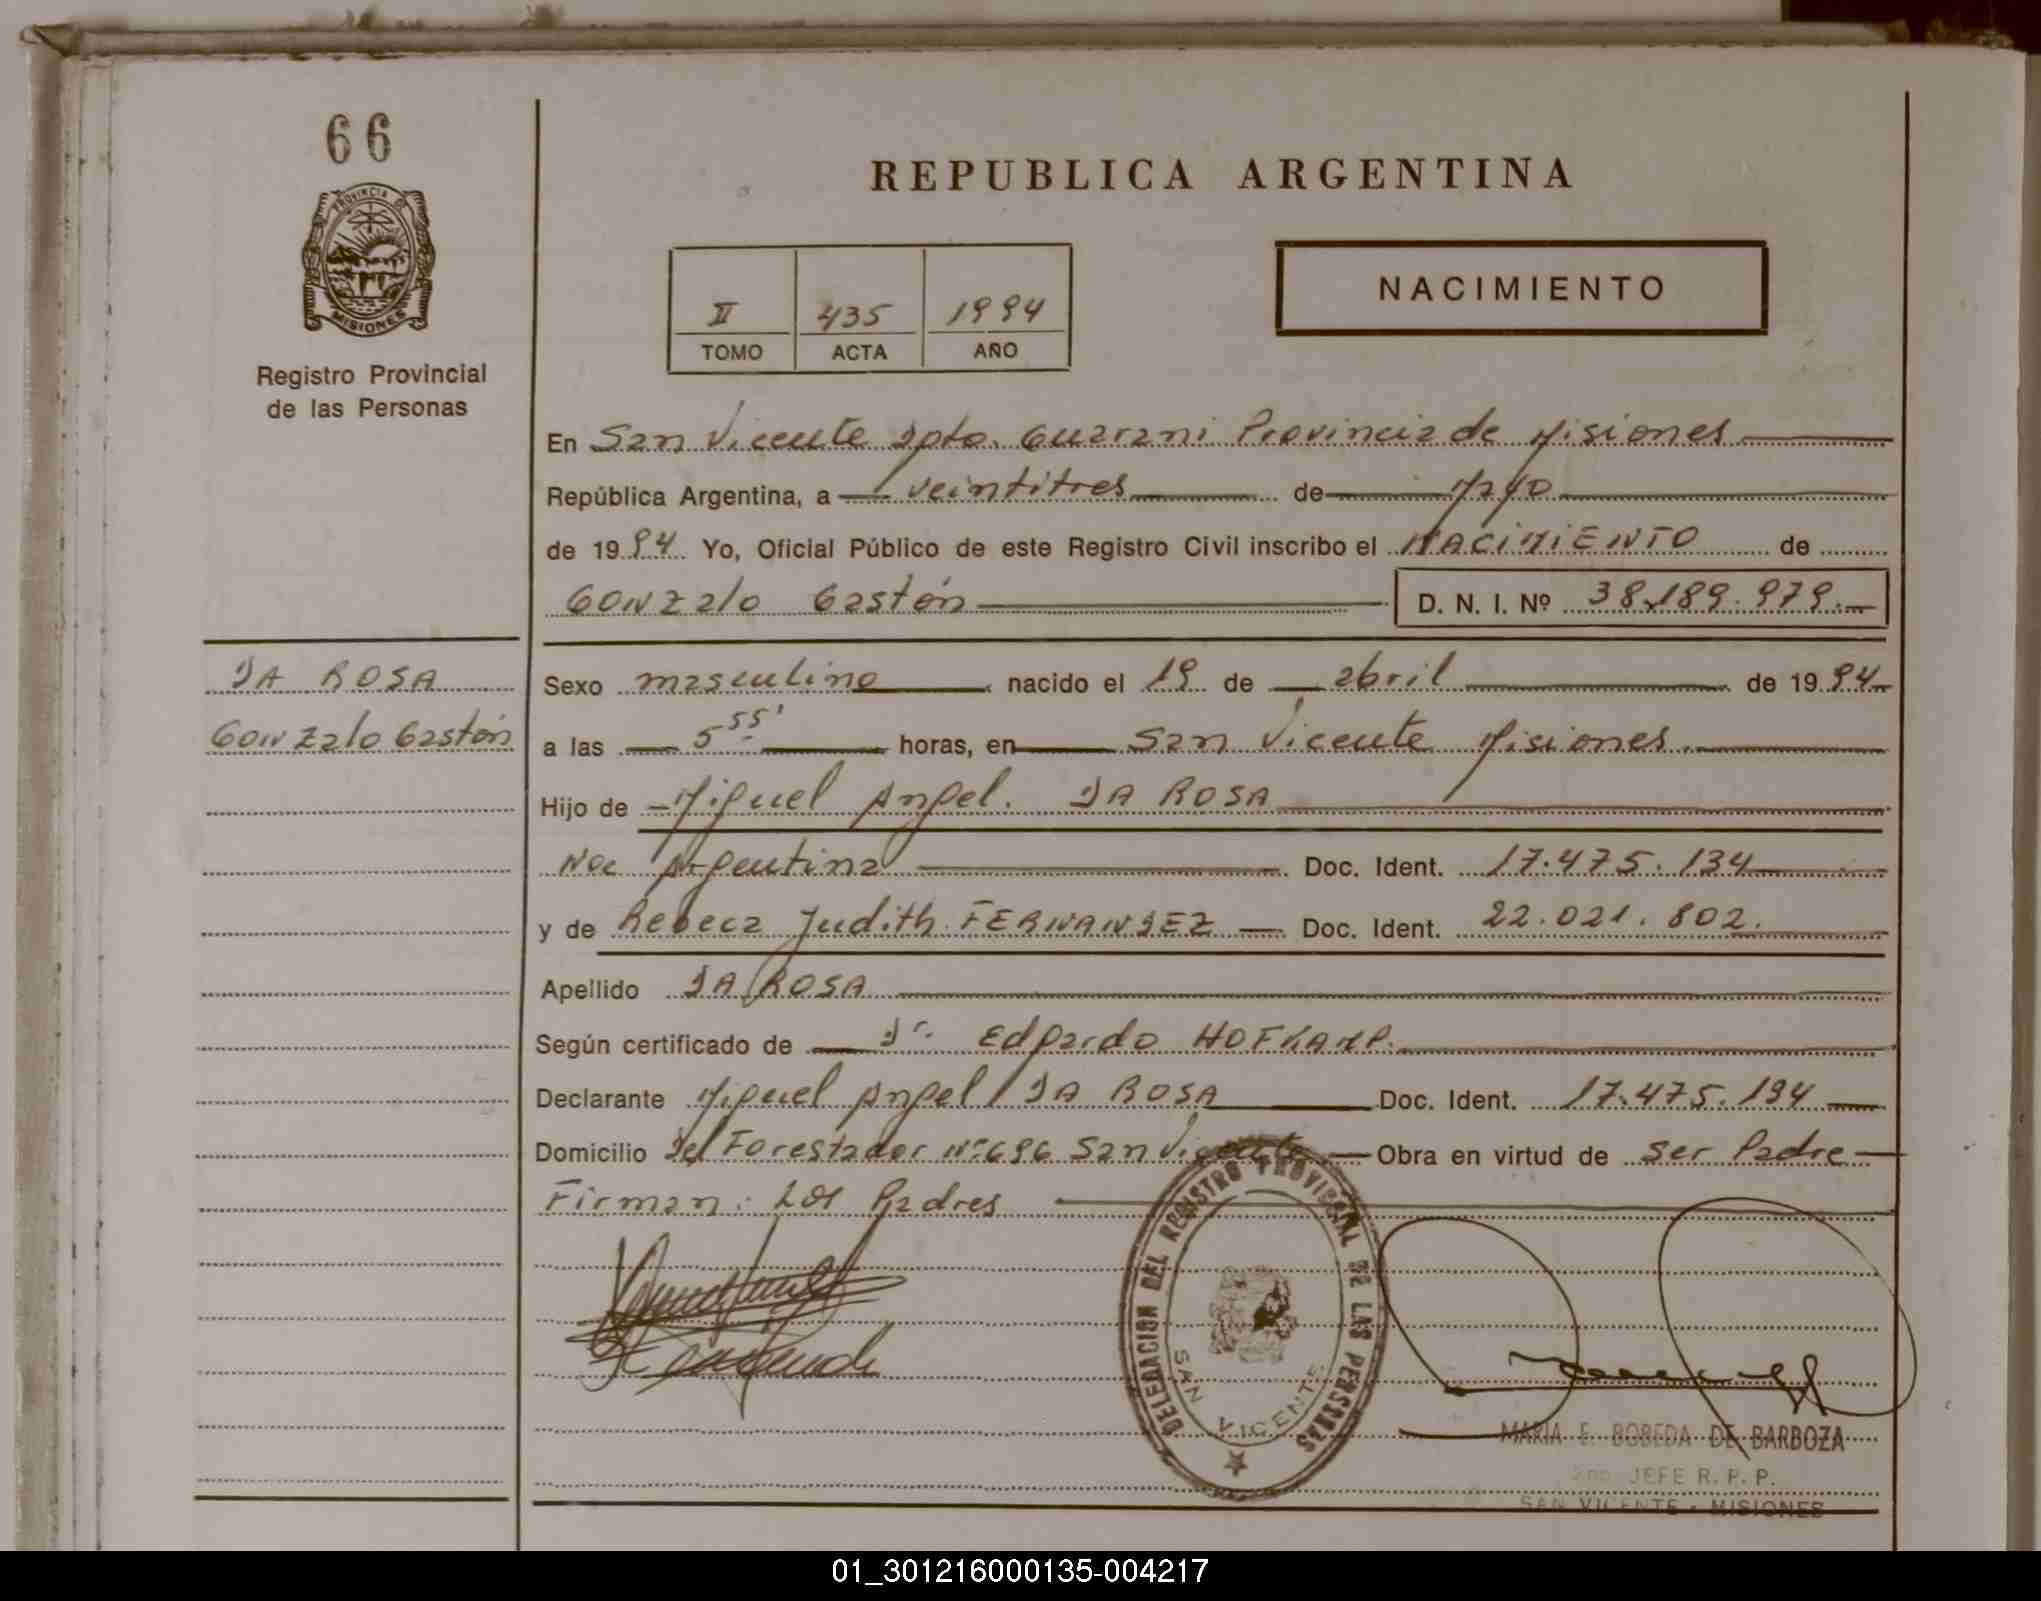 66
PROVINCIA DE
MISIONES
Registro Provincial
de las Personas
REPUBLICA ARGENTINA
II 435 1994
TOMO ACTA AÑO
NACIMIENTO
En San Vicente Dpto. Guarani Provincia de Misiones
República Argentina, a veintitres de Mayo
de 1994 Yo, Oficial Público de este Registro Civil inscribo el NACIMIENTO de
GONZalo Gastón D. N. I. Nº 38.189.979.
DA ROSA
Gonzalo Gastón
Sexo masculino nacido el 19 de abril de 1994
a las 5 55' horas, en San Vicente Misiones.
Hijo de Miguel Angel. DA ROSA
Nac Argentina Doc. Ident. 17.475.134
y de Rebeca Judith FERNANDEZ Doc. Ident. 22.021.802.
Apellido DA ROSA
Según certificado de Dr. Edgardo HOFKAMP.
Declarante Miguel Angel DA ROSA Doc. Ident. 17.475.194
Domicilio Del Forestador Nº 696 San Vicente Obra en virtud de ser Padre
Firman: Los Padres
DELEGACION DEL REGISTRO PROVINCIAL DE LAS PERSONAS
SAN VICENTE
MARIA E. BOBEDA DE BARBOZA
2do JEFE R. P. P.
SAN VICENTE - MISIONES
01_301216000135-004217